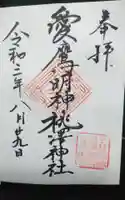 奉拝
愛鷹明神桃澤神社
令和二年八月廿九日